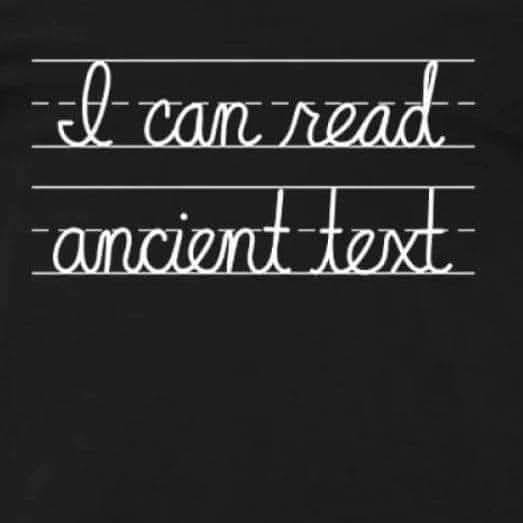 I can read
ancient text